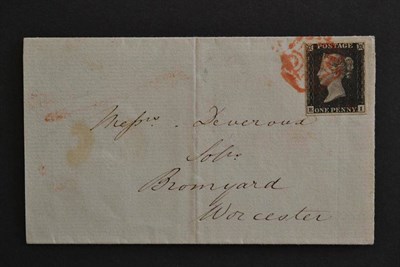 POSTAGE
ONE PENNY
Messrs. Deveroux
Solrs
Bromyard
Worcester